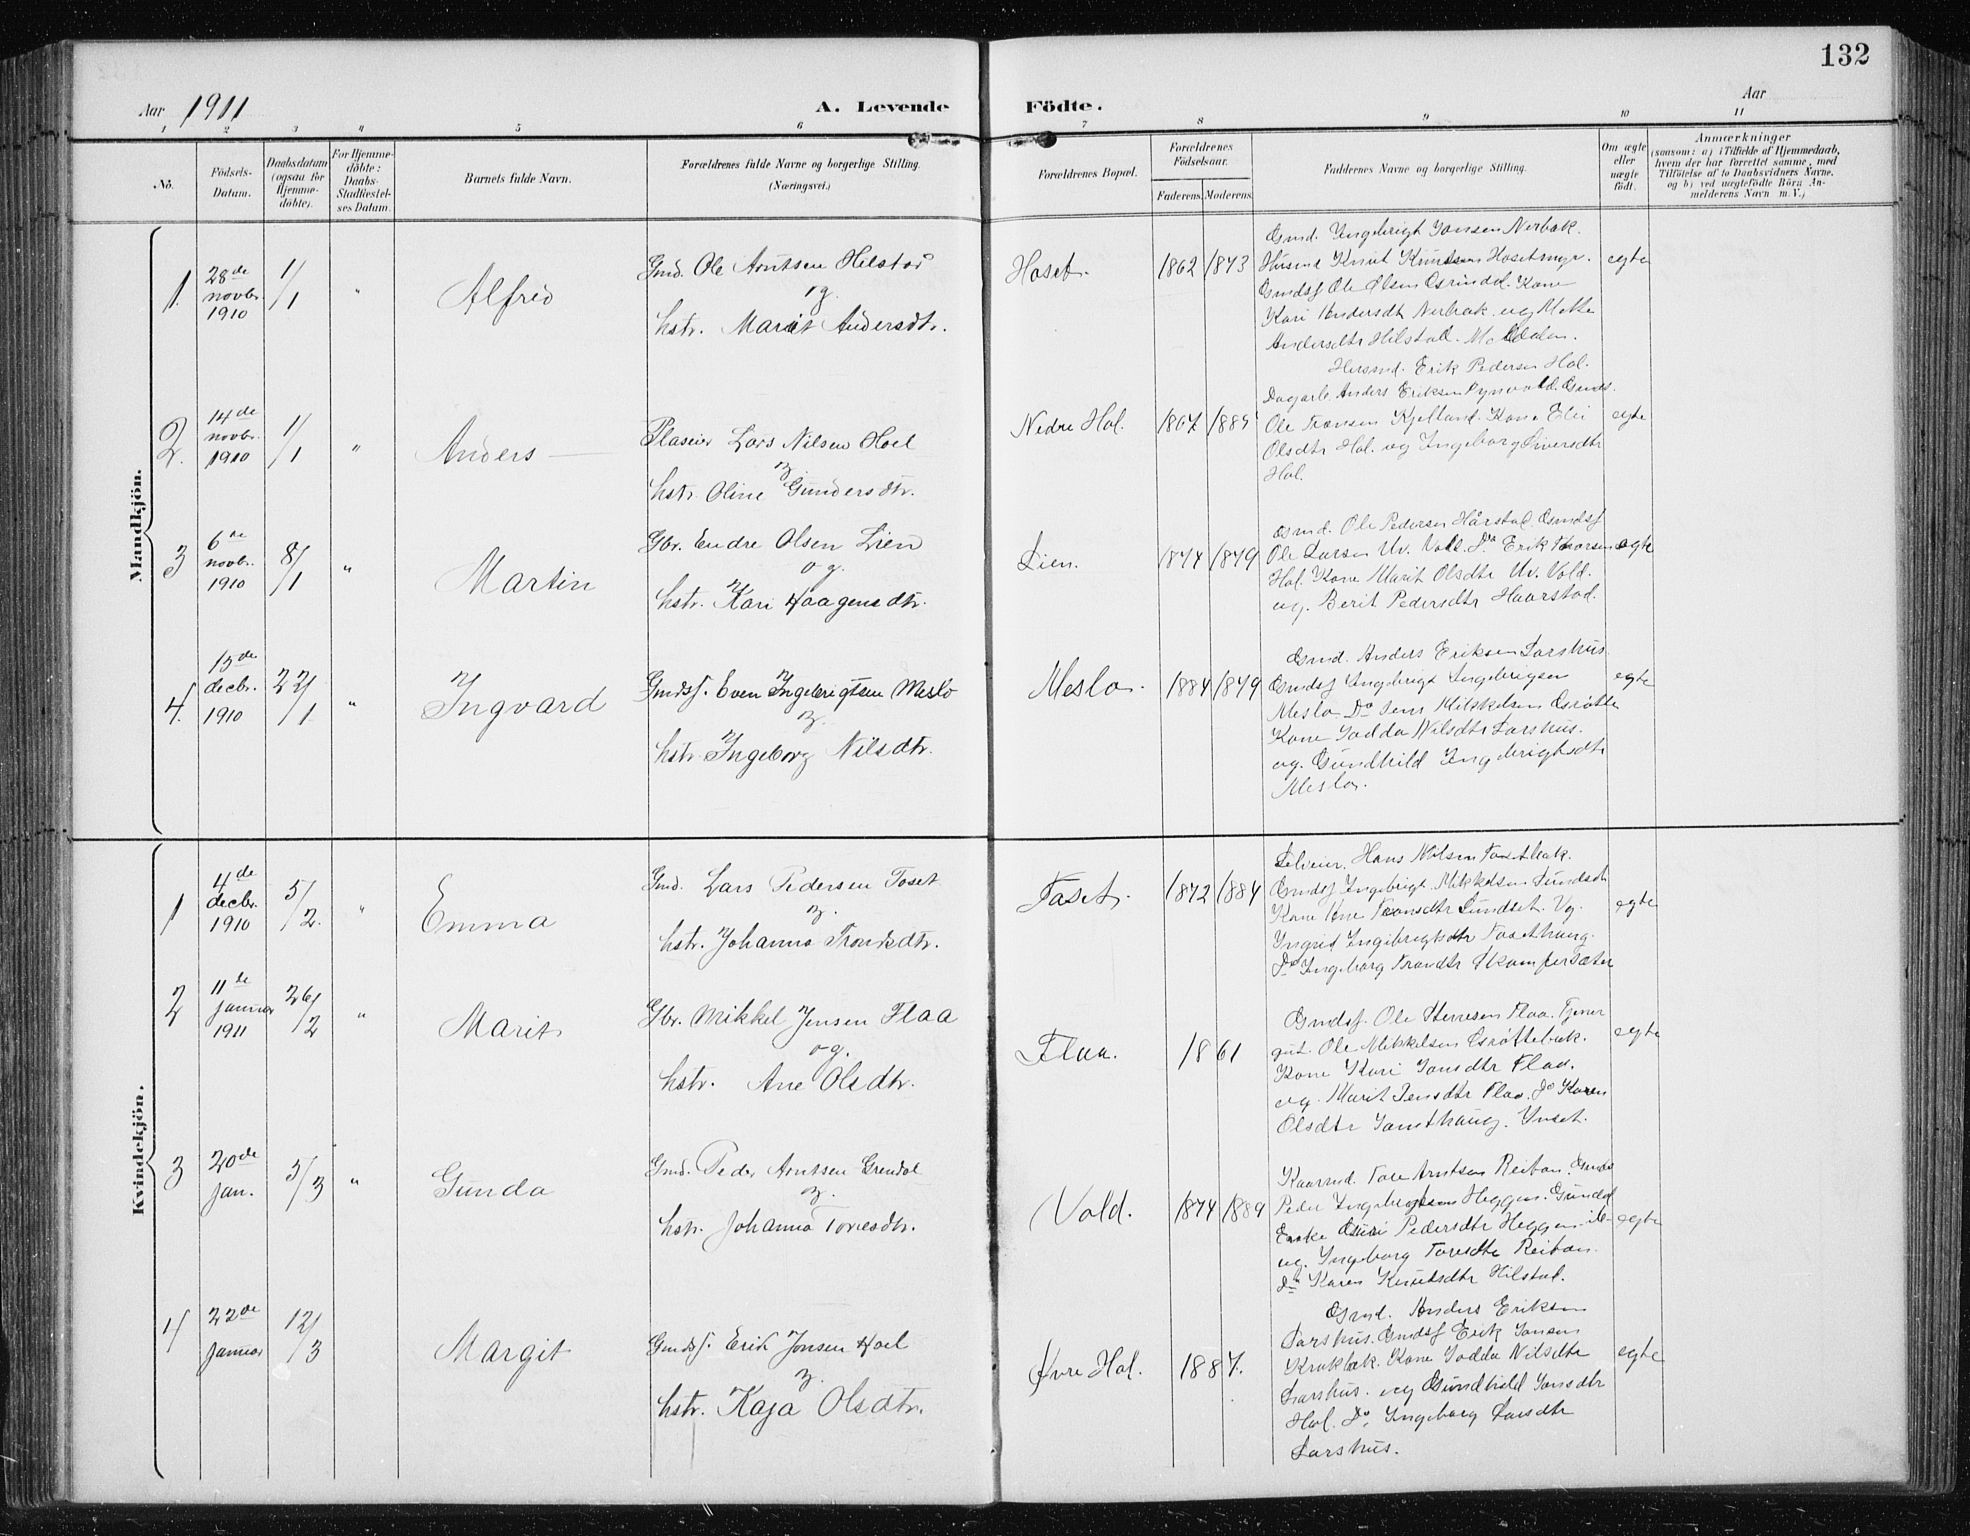 132
Aar 1911
A. Levende Födte.
Aar
1 2 3 4 5 6 7 8 9 10 11
No.
Födsels-Datum.
Daabsdatum (ogsaa for Hjemme-döbte).
For Hjemme-döbte: Daabs-Stadfæstel-ses Datum.
Barnets fulde Navn.
Forældrenes fulde Navne og borgerlige Stilling.
(Næringsvei.)
Forældrenes Bopæl.
Forældrenes Födselsaar.
Faderens. Moderens.
Faddernes Navne og borgerlige Stilling.
Om ægte eller uægte födt.
Anmærkninger
(saasom: a) i Tilfælde af Hjemmedaab, hvem der har forrettet samme, med Tilföielse af to Daabsvidners Navne, og b) ved uægtefödte Börn An-melderens Navn m. V.)
Mandkjön.
1. 28de novbr. 1910
1/1 "
Alfred
Gmd. Ole Arntsen Hilstad
og
hstr. Marit Andersdtr.
Hoset.
1862 1873
Gmd. Ingebrigt Jonsen Nerbak.
Husmd Knut Knutsen Hosetmyr.
Gmdsf Ole Olsen Grindal. Kone
Kari Andersdt Nerbak og Mette
Andersdtr Hilstad. Meldalen.
egte
2. 14de novbr. 1910
1/1 "
Anders
Plaseier Lars Nilsen Hoel
og
hstr. Oline Gundersdtr.
Nedre Hol.
1867 1885
Husmd. Erik Pedersen Hol.
Dagarb. Anders Eriksen Gmds.
Ole Tronsen Kjelland. Kone Eli
Olsdtr Hol. og Ingeborg Siversdtr
Hol.
egte
3 6de novbr. 1910
8/1 "
Martin
Gbr. Endre Olsen Lien
og.
hstr. Kari Haagensdtr.
Lien.
1874 1879
Gmd. Ole Pedersen Hårstad. Gmdsf
Ole Larsen Uv. Vold. Do Erik Thorsen
Hol. Kone Marit Olsdtr Uv. Vold.
og. Berit Pedersdtr Haarstad.
egte
4. 15de decbr. 1910
22/1 "
Ingvard
Gmdsf. Even Ingebrigtsen Meslo
og.
hstr. Ingeborg Nilsdtr.
Meslo.
1884 1879
Gmd. Anders Eriksen Larshus.
Gmdsf Ingebrigt Ingebrigtsen
Meslo Do Jens Mikkelsen Grötte
Kone Jadda Nilsdtr Larshus.
og. Gundhild Ingebrigtsdtr
Meslo.
egte
Kvindekjön.
1 4de decbr. 1910
5/2. "
Emma
Gmd. Lars Pedersen Toset
og.
hstr. Johanna Trondsdtr.
Toset.
1872 1884
Selveier. Hans Nilsen
Gmdsf Ingebrigt Mikkelsen Sundset
Kone Ane Tronsdtr Sundset. Ug.
Ingrid Ingebrigtsdtr Tosethaug.
Do Ingeborg Trondtr Skamfersæter
egte
2 11de januar 1911
26/2 "
Marit
Gbr. Mikkel Jensen Flaa
og.
hstr. Ane Olsdtr.
Flaa.
1861
Gmdsf. Ole Flaa. Tjener
gut. Ole Mikkelsen Grøttebak.
Kone Kari Jonsdtr Flaa.
og. Marit Jensdtr Flaa. Do Karen
Olsdtr Innset.
egte
3 20de jan.
5/3 "
Gunda
Gmd. Peder Arntsen Grendal
og.
hstr. Johanna Toresdtr.
Vold.
1874 1889
Kaarmd. Tore Arntsen Reitan. Gmds
Peder Ingebrigtsen Heggen. Gundd
Enke Guri Pedersdtr Heggen
og. Ingeborg Toresdtr Reitan.
Do Karen Knutsdtr Hilstad.
egte
4 22de januar
12/3
Margit
Gmdsf. Erik Jonsen Hoel
og.
hstr. Kaja Olsdtr.
Øvre Hol.
1887.
Gmd. Anders Eriksen
Larshus. Gmdsf Erik Jonsen
Krokbak. Kone Jadda Nilsdtr
Larshus. og Gundhild Jonsdtr
Hol. Do. Ingeborg Larsdtr
Larshus.
egte